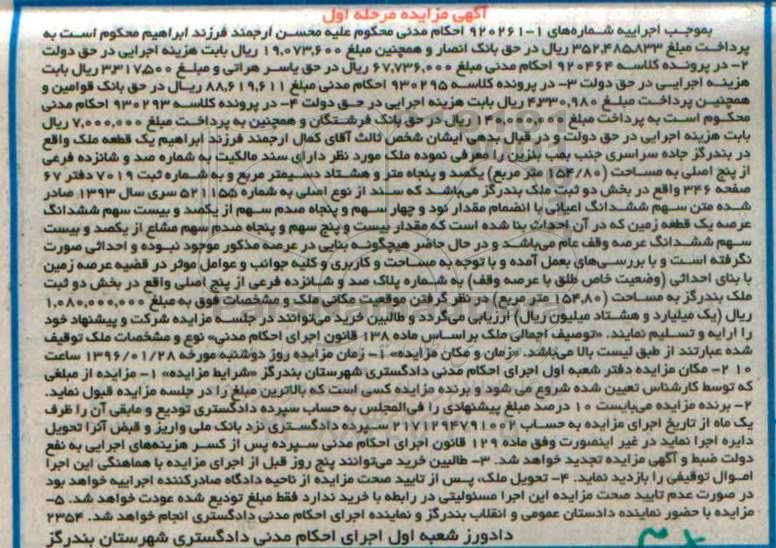 آگهی مزایده مرحله اول
بموجب اجراییه شماره‌های ۱-۹۲۰۲۶۱ احکام مدنی محکوم علیه محسن ارجمند فرزند ابراهیم محکوم است به
پرداخت مبلغ ۳۵۲,۴۸۵,۸۳۳ ریال در حق بانک انصار و همچنین مبلغ ۱۹,۰۷۳,۶۰۰ ریال بابت هزینه اجرایی در حق دولت
۲- در پرونده کلاسه ۹۲۰۴۶۴ احکام مدنی مبلغ ۶۷,۷۳۶,۰۰۰ ریال در حق یاسر هراتی و مبلغ ۳,۳۱۷,۵۰۰ ریال بابت
هزینه اجرایی در حق دولت ۳- در پرونده کلاسه ۹۳۰۲۹۵ احکام مدنی مبلغ ۸۸,۶۱۹,۶۱۱ ریال در حق بانک قوامین و
همچنین پرداخت مبلغ ۴,۳۳۰,۹۸۰ ریال بابت هزینه اجرایی در حق دولت ۴- در پرونده کلاسه ۹۳۰۲۹۳ احکام مدنی
محکوم است به پرداخت مبلغ ۱۴۰,۰۰۰,۰۰۰ ریال در حق بانک فرشتگان و همچنین به پرداخت مبلغ ۷,۰۰۰,۰۰۰ ریال
بابت هزینه اجرایی در حق دولت و در قبال بدهی ایشان شخص ثالث آقای کمال ارجمند فرزند ابراهیم یک قطعه ملک واقع
در بندرگز جاده سراسری جنب پمپ بنزین را معرفی نموده ملک مورد نظر دارای سند مالکیت به شماره صد و شانزده فرعی
از پنج اصلی به مساحت (۱۵۴/۸۰ متر مربع) یکصد و پنجاه متر و هشتاد دسیمتر مربع و به شماره ثبت ۷۰۱۹ دفتر ۶۷
صفحه ۳۴۶ واقع در بخش دو ثبت ملک بندرگز می‌باشد که سند از نوع اصلی به شماره ۵۲۱۱۵۵ سری سال ۱۳۹۳ صادر
شده متن سهم ششدانگ اعیانی با انضمام مقدار نود و چهار سهم و پنجاه صدم سهم از یکصد و بیست سهم ششدانگ
عرصه یک قطعه زمین که در آن احداث بنا شده است که مقدار بیست و پنج سهم و پنجاه صدم سهم مشاع از یکصد و بیست
سهم ششدانگ عرصه وقف عام می‌باشد و در حال حاضر هیچگونه بنایی در عرصه مذکور موجود نبوده و احداثی صورت
نگرفته است و با بررسی‌های بعمل آمده و با توجه به مساحت و کاربری و کلیه جوانب و عوامل موثر در قضیه عرصه زمین
با بنای احداثی (وضعیت خاص طلق با عرصه وقف) به شماره پلاک صد و شانزده فرعی از پنج اصلی واقع در بخش دو ثبت
ملک بندرگز به مساحت (۱۵۴,۸۰ متر مربع) در نظر گرفتن موقعیت مکانی ملک و مشخصات فوق به مبلغ ۱,۰۸۰,۰۰۰,۰۰۰
ریال (یک میلیارد و هشتاد میلیون ریال) ارزیابی می‌گردد و طالبین خرید می‌توانند در جلسه مزایده شرکت و پیشنهاد خود
را ارایه و تسلیم نمایند. «توصیف اجمالی ملک براساس ماده ۱۳۸ قانون اجرای احکام مدنی» نوع و مشخصات ملک توقیف
شده عبارتند از طبق لیست بالا می‌باشد. «زمان و مکان مزایده» ۱- زمان مزایده روز دوشنبه مورخه ۱۳۹۶/۰۱/۲۸ ساعت
۱۰ ۲- مکان مزایده دفتر شعبه اول اجرای احکام مدنی دادگستری شهرستان بندرگز «شرایط مزایده» ۱- مزایده از مبلغی
که توسط کارشناس تعیین شده شروع می شود و برنده مزایده کسی است که بالاترین مبلغ را در جلسه مزایده قبول نماید.
۲- برنده مزایده می‌بایست ۱۰ درصد مبلغ پیشنهادی را فی‌المجلس به حساب سپرده دادگستری تودیع و مابقی آن را ظرف
یک ماه از تاریخ اجرای مزایده به حساب ۲۱۷۱۲۹۴۷۹۱۰۰۲ سپرده دادگستری نزد بانک ملی واریز و قبض آنرا تحویل
دایره اجرا نماید در غیر اینصورت وفق ماده ۱۲۹ قانون اجرای احکام مدنی سپرده پس از کسر هزینه‌های اجرایی به نفع
دولت ضبط و آگهی مزایده تجدید خواهد شد. ۳- طالبین خرید می‌توانند پنج روز قبل از اجرای مزایده با هماهنگی این اجرا
اموال توقیفی را بازدید نماید. ۴- تحویل ملک، پس از تایید صحت مزایده از ناحیه دادگاه صادرکننده اجراییه خواهد بود
در صورت عدم تایید صحت مزایده این اجرا مسئولیتی در رابطه با خرید ندارد فقط مبلغ تودیع شده عودت خواهد شد. ۵-
مزایده با حضور نماینده دادستان عمومی و انقلاب بندرگز و نماینده اجرای احکام مدنی دادگستری انجام خواهد شد. ۲۳۵۴
دادورز شعبه اول اجرای احکام مدنی دادگستری شهرستان بندرگز